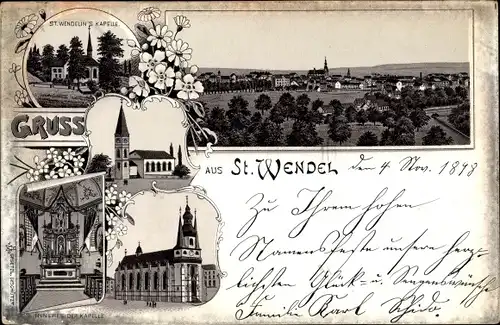 ST. WENDELIN'S KAPELLE
GRUSS
AUS ST. WENDEL
den 4 Nov. 1898
Zu Ihrem hohen
Namensfeste unsere herz-
lichsten Glück- u. Segenswünsche
Familie Karl
INNERES DER KAPELLE